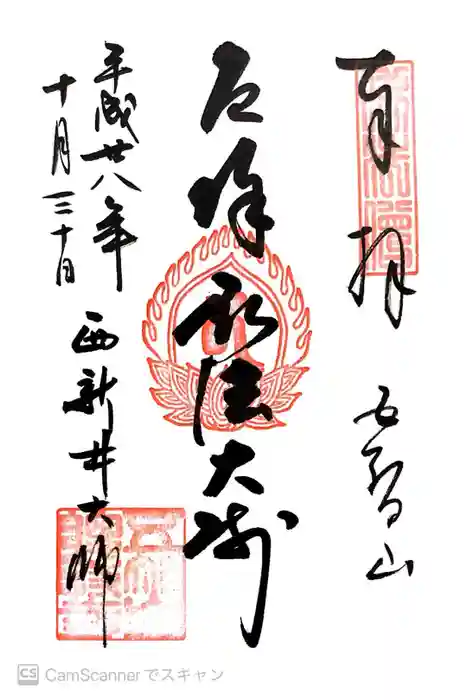 奉拝
五智山
厄除弘法大師
平成廿八年
十月三十日
西新井大師
CamScannerでスキャン